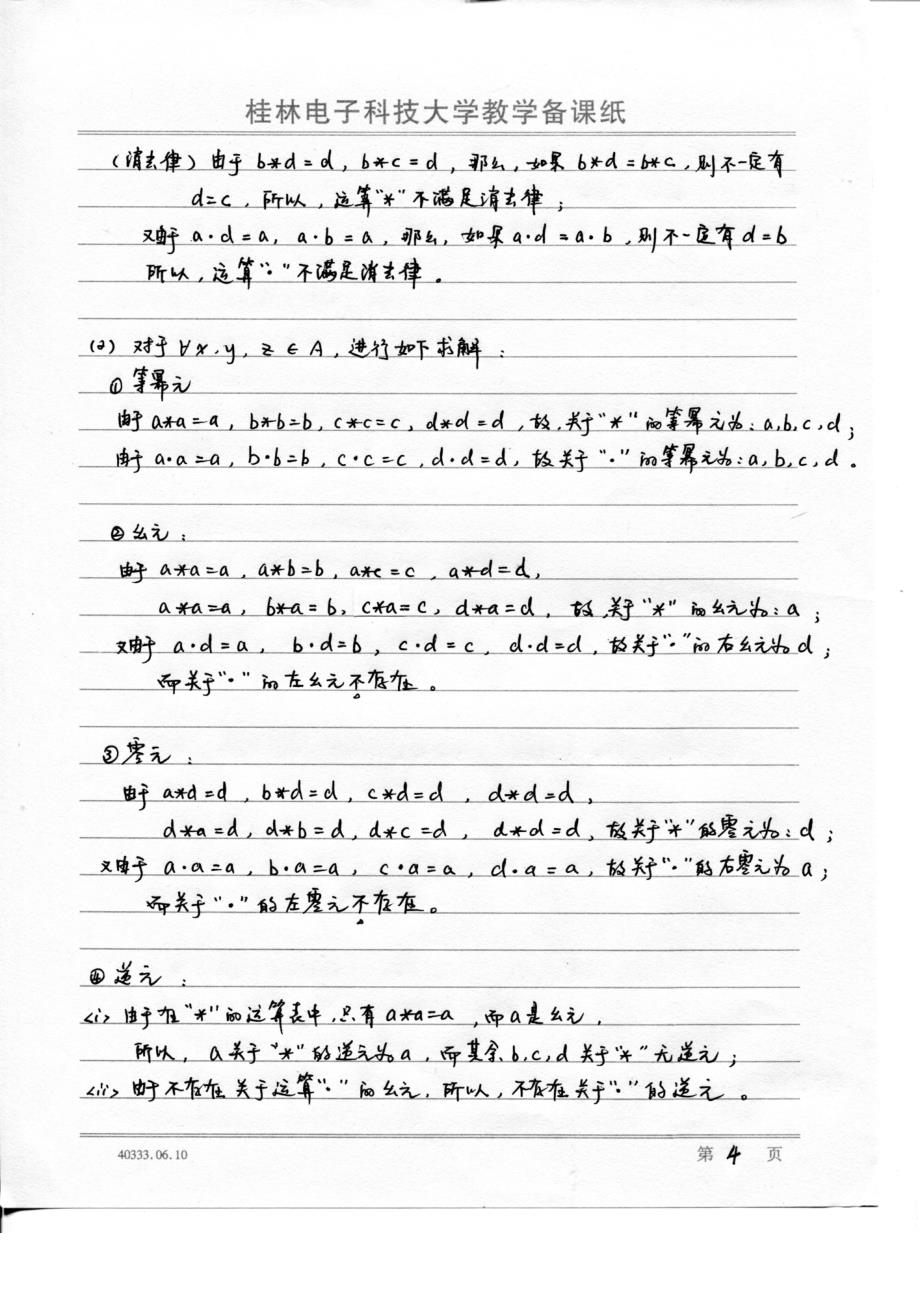 桂林电子科技大学教学备课纸
(消去律) 由于 b*d=d, b*c=d, 那么, 如果 b*d=b*c, 则不一定有
d=c, 所以, 运算"*"不满足消去律;
又由于 a·d=a, a·b=a, 那么, 如果 a·d=a·b, 则不一定有 d=b
所以, 运算"·"不满足消去律。
(2) 对于∀x,y,z∈A, 进行如下求解:
① 等幂元
由于 a*a=a, b*b=b, c*c=c, d*d=d, 故,关于"*"的等幂元为: a,b,c,d;
由于 a·a=a, b·b=b, c·c=c, d·d=d, 故关于"·"的等幂元为: a,b,c,d。
② 幺元:
由于 a*a=a, a*b=b, a*c=c, a*d=d,
a*a=a, b*a=b, c*a=c, d*a=d, 故,关于"*"的幺元为: a;
又由于 a·d=a, b·d=b, c·d=c, d·d=d, 故关于"·"的右幺元为d;
而关于"·"的左幺元不存在。
③ 零元:
由于 a*d=d, b*d=d, c*d=d, d*d=d,
d*a=d, d*b=d, d*c=d, d*d=d, 故关于"*"的零元为: d;
又由于 a·a=a, b·a=a, c·a=a, d·a=a, 故关于"·"的右零元为 a;
而关于"·"的左零元不存在。
④ 逆元:
<i> 由于在"*"的运算表中,只有 a*a=a, 而a是幺元,
所以, a关于"*"的逆元为a, 而其余b,c,d关于"*"无逆元;
<ii> 由于不存在关于运算"·"的幺元, 所以, 不存在关于"·"的逆元。
40333.06.10
第 4 页